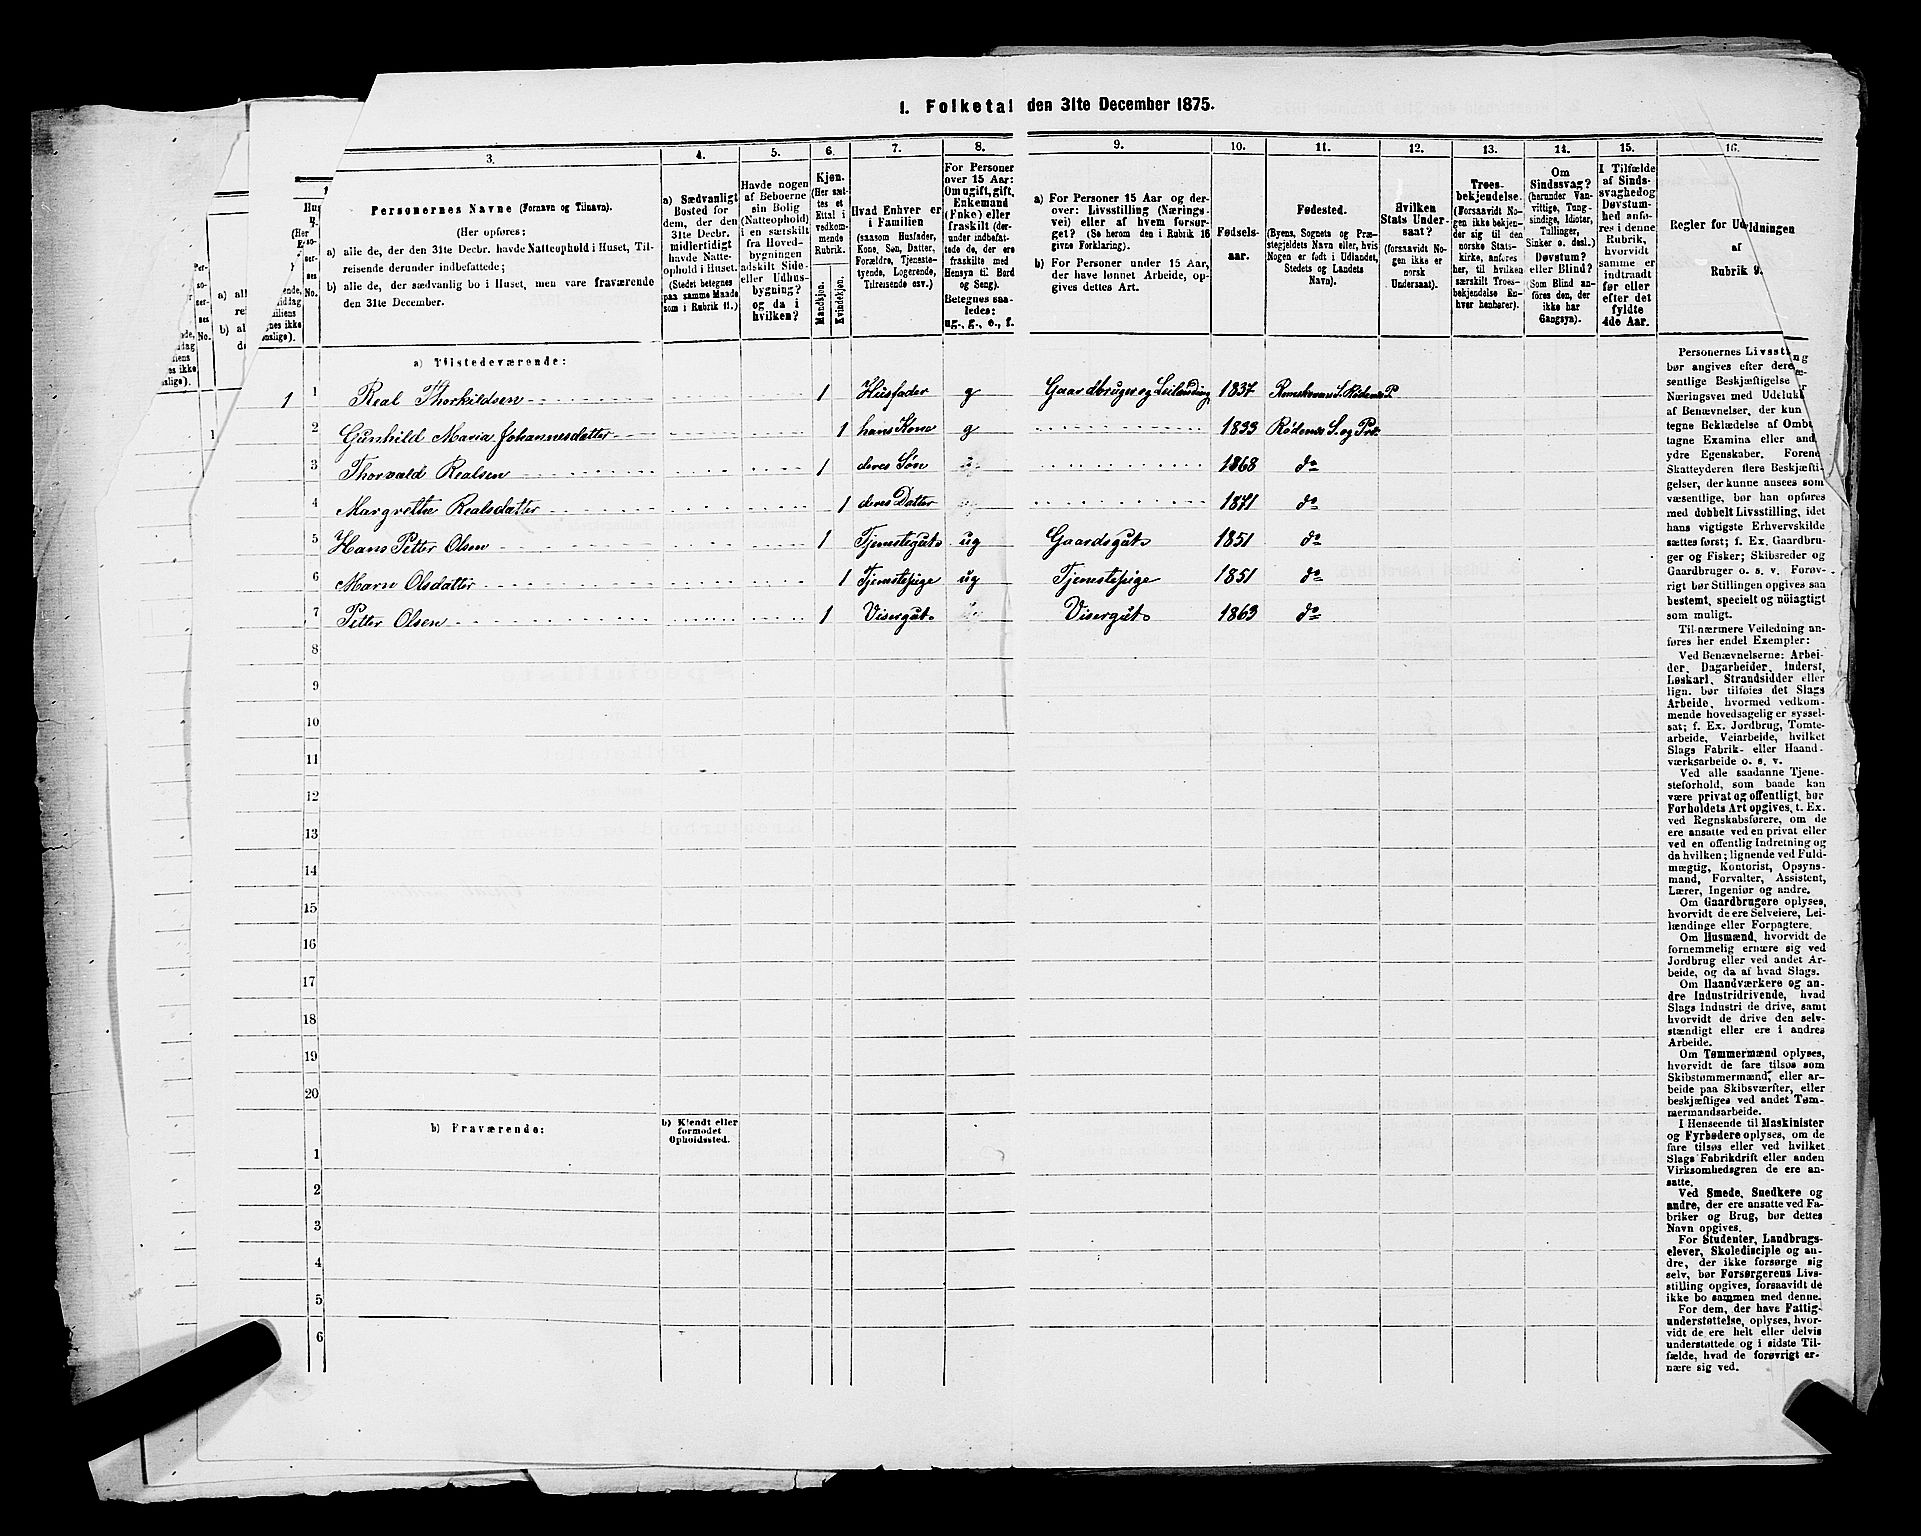 I. Folketal den 31te December 1875.
3. 4. 5. 6. 7. 8. 9. 10. 11. 12. 13. 14. 15. 16.
Personernes Navne (Fornavn og Tilnavn).
(Her opføres:
a) alle de, der den 31te Decbr. havde Natteophold i Huset, Til-
reisende derunder indbefattede;
b) alle de, der sædvanlig bo i Huset, men vare fraværende
den 31te December.
a) Sædvanligt
Bosted for
dem, der den
31te Decbr.
midlertidigt
havde Natte-
ophold i Huset.
(Stedet betegnes
paa samme Maade
som i Rubrik 11.)
Havde nogen
af Beboerne
sin Bolig
(Natteophold)
i en særskilt
fra Hoved-
bygningen
adskilt Side-
eller Udhus-
bygning?
og da i
hvilken?
Kjøn.
(Her sæt-
tes et
Ettal i
vedkom-
mende
Rubrik.
Mandkjøn.
Kvindekjøn.
Hvad Enhver er
i Familien
(saasom Husfader,
Kone, Søn, Datter,
Forældre, Tjeneste-
tyende, Logerende,
Tilreisende osv.)
For Personer
over 15 Aar:
Om ugift, gift,
Enkemand
(Enke) eller
fraskilt (der-
under indbefat-
tede de, der ere
fraskilte med
Hensyn til Bord
og Seng).
Betegnes saa-
ledes:
ug., g., e., f.
a) For Personer 15 Aar og der-
over: Livsstilling (Nærings-
vei) eller af hvem forsør-
get? (Se herom den i Rubrik 16
givne Forklaring).
b) For Personer under 15 Aar,
der have lønnet Arbeide, op-
gives dettes Art.
Fødsels-
aar.
Fødested.
(Byens, Sognets og Præ-
stegjeldets Navn eller, hvis
Nogen er født i Udlandet,
Stedets og Landets
Navn).
Hvilken
Stats Under-
saat?
(forsaavidt No-
gen ikke er
norsk
Undersaat).
Troes-
bekjendelse.
(Forsaavidt No-
gen ikke bekjen-
der sig til den
norske Stats-
kirke, anføres
her, til hvilken
særskilt Troes-
bekjendelse En-
hver henhører).
Om
Sindssvag?
(herunder Van-
vittige, Tung-
sindige, Idioter,
Tullinger,
Sinker o. desl.)
Døvstum?
eller Blind?
(Som Blind an-
føres den, der
ikke har
Gangsyn).
I Tilfælde
af Sinds-
svaghed og
Døvstum-
hed anfø-
res i denne
Rubrik,
hvorvidt
samme er
indtraadt
før eller
efter det
fyldte
4de Aar.
Regler for Udfyldningen
af
Rubrik 9.
a) Tilstedeværende:
1 1 Real Thorkildsen 1 Husfader g Gaardbruger og Leilænding 1837
2 Gunhild Maria Johannesdatter 1 hans Kone g 1833 Rødenæs S. og Prt.
3 Thorvald Realsen 1 deres Søn 1868 do
4 Margrethe Realsdatter 1 deres Datter 1871 do
5 Hans Petter Olsen 1 Tjenestegut ug Gaardsgut 1851 do
6 Maren Olsdatter 1 Tjenestepige ug Tjenestepige 1851 do
7 Petter Olsen 1 Visergut Visergut 1863 do
8
9
10
11
12
13
14
15
16
17
18
19
20
b) Fraværende:
b) Kjendt eller
formodet
Opholdssted.
1
2
3
4
5
6
Personernes Livsstilling
bør angives efter dere
sentlige Beskjæftigelse
Næringsvei med Udeluk
af Benævnelser, der kun
tegne Beklædelse af Ombu
tagne Examina eller and
ydre Egenskaber. Forene
Skatteyderen flere Beskjæfti-
gelser, der kunne ansees som
væsentlige, bør han opføres
med dobbelt Livsstilling, idet
hans vigtigste Erhvervskilde
sættes først; f. Ex. Gaardbru-
ger og Fisker; Skibsreder og
Gaardbruger o. s. v. Forøv-
rigt bør Stillingen opgives saa
bestemt, specielt og nøiagtigt
som muligt.
Til nærmere Veiledning an-
føres her endel Exempler:
Ved Benævnelserne: Arbei-
der, Dagarbeider, Inderst,
Løskarl, Strandsidder eller
lign. bør tilføies det Slags
Arbeide, hvormed vedkom-
mende hovedsagelig er syssel-
sat; f. Ex. Jordbrug, Tomte-
arbeide, Veiarbeide, hvilket
Slags Fabrik- eller Haand-
værksarbeide o. s. v.
Ved alle saadanne Tjene-
steforhold, som baade kan
være privat og offentligt, bør
Forholdets Art opgives, t. Ex.
ved Regnskabsførere, om de
ere ansatte ved en privat eller
ved en offentlig Indretning og
da hvilken; lignende ved Fuld-
mægtig, Kontorist, Opsyns-
mand, Forvalter, Assistent,
Lærer, Ingeniør og andre.
Om Gaardbrugere oplyses,
hvorvidt de ere Selveiere, Lei-
lændinge eller Forpagtere.
Om Husmænd, hvorvidt de
fornemmelig ernære sig ved
Jordbrug eller ved andet Ar-
beide, og da af hvad Slags.
Om Haandværkere og an-
dre Industridrivende, hvad
Slags Industri de drive, samt
hvorvidt de drive den selv-
stændigt eller ere i andres
Arbeide.
Om Tømmermænd oplyses,
hvorvidt de fare tilsøs som
Skibstømmermænd, eller ar-
beide paa Skibsværfter, eller
beskjæftiges ved andet Tøm-
mermandsarbeide.
I Henseende til Maskinister
og Fyrbødere oplyses, om de
fare tilsøs eller ved hvilket
Slags Fabrikdrift eller anden
Virksomhedsgren de ere an-
satte.
Ved Smede, Snedkere og
andre, der ere ansatte ved Fa-
briker og Brug, bør dettes
Navn opgives.
For Studenter, Landbrugs-
elever, Skoledisciple og an-
dre, der ikke forsørge sig
selv, bør Forsørgerens Livs-
stilling opgives, forsaavidt de
ikke bo sammen med denne.
For dem, der have Fattig-
understøttelse, oplyses, hvor-
vidt de ere helt eller delvis
understøttede og i sidste Til-
fælde, hvad de forøvrigt er-
nære sig ved.